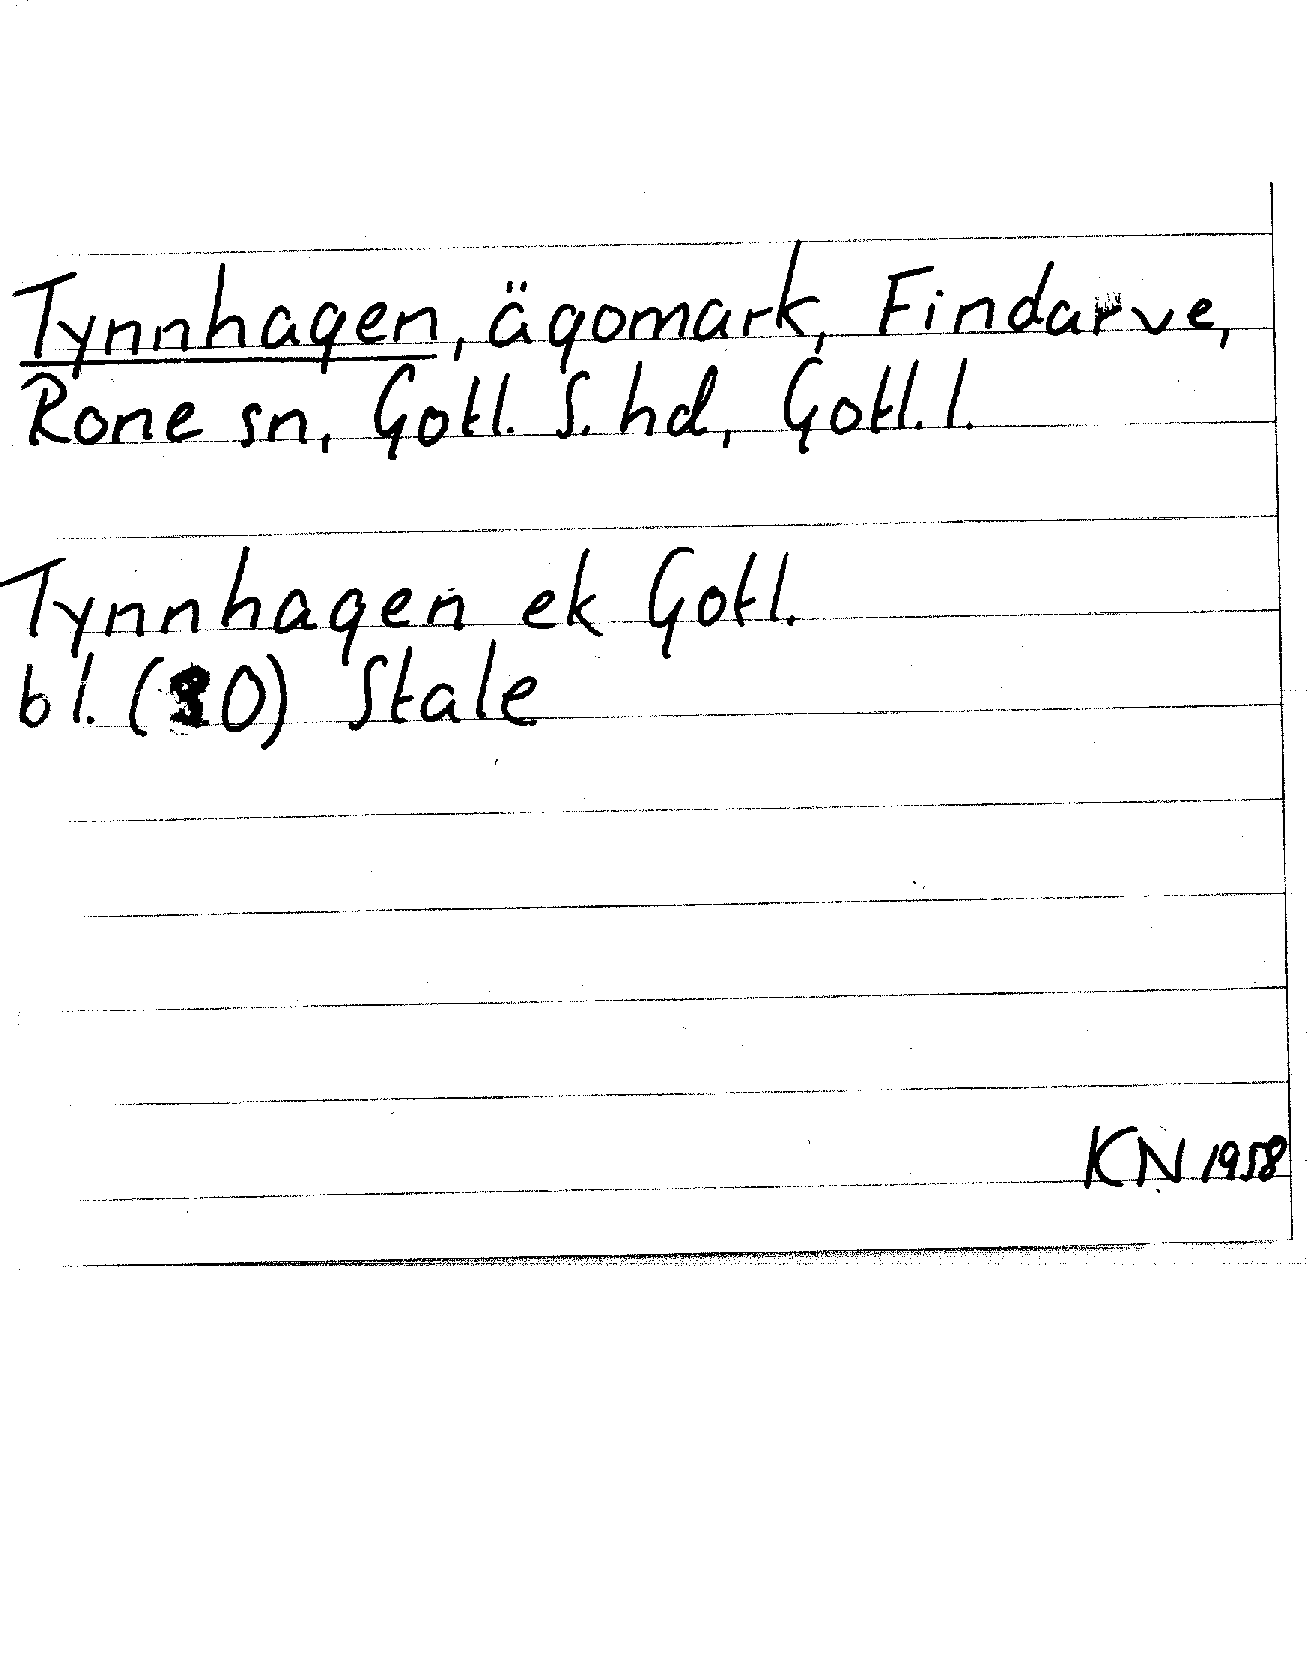 Tynnhagen, ägomark, Findarve,
Rone sn, Gotl. S. hd, Gotl. l.
Tynnhagen ek Gotl.
bl. Stale
KN 1958